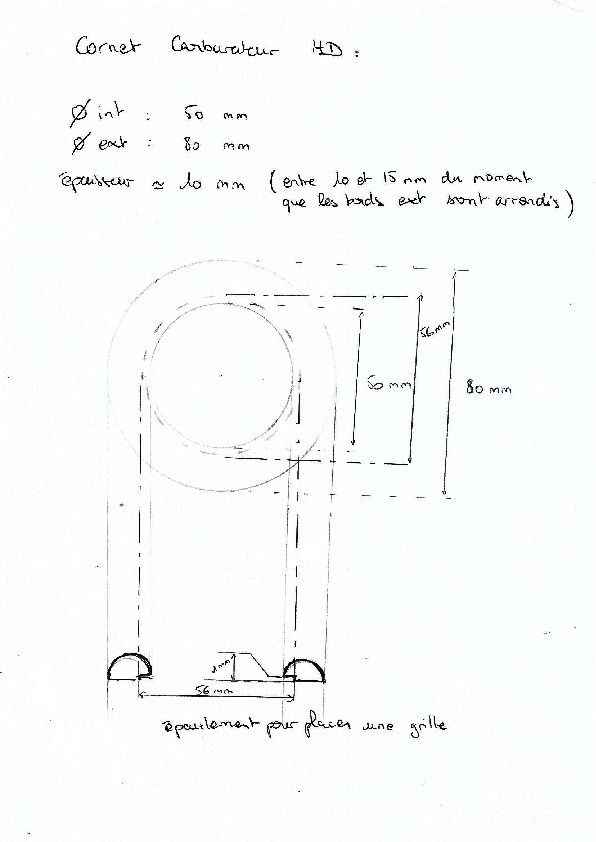 Cornet Carburateur HD :
Ø int : 50 mm
Ø ext : 80 mm
épaisseur ≃ 10 mm (entre 10 et 15 mm du moment
que les bords ext sont arrondis)
56 mm
50 mm
80 mm
56 mm
épaulement pour placer une grille